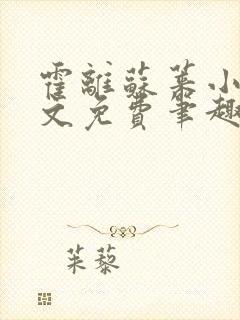 霍離蘇菾小
文免費筆趣
茱藜